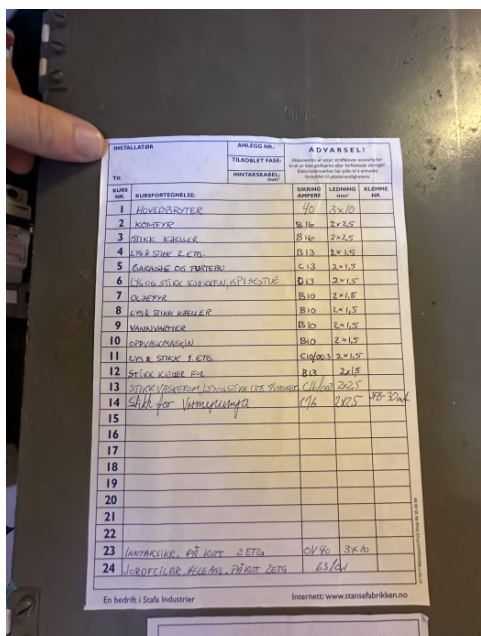 INSTALLATØR
ANLEGG NR.:
TILKOBLET FASE:
INNTAKSKABEL: mm²
TR
ADVARSEL!
KURS NR. KURSFORTEGNELSE: SIKRING AMPERE LEDNING mm² KLEMME NR.
1 HOVEDBRYTER 40 3x10
2 KOMFYR B16 2x2,5
3 STIKK KJELLER B16 2x2,5
4 LYS & STIKK 2 ETG. B13 2x1,5
5 GARASJE OG C13 2x1,5
6 LYS OG STIKK KJØKKEN, SPISESTUE D13 2x1,5
7 OLJEFYR B10 2x1,5
8 LYS & STIKK KJELLER B10 2x1,5
9 VANNVARMER B10 2x1,5
10 OPPVASKMASKIN B10 2x1,5
11 LYS & STIKK 1. ETG. C10/0.03 2x1,5
12 STIKK KJELLER B13 2x1,5
13 STIKK VASKEROM, 2x2,5
14 Stikk for Varmepumpe C16 2x2,5
15
16
17
18
19
20
21
22
23 INNTAKSIKR. PÅ KOTT 2 ETG OV40 3x10
24 JORDFEILBR. HELE ANL. PÅ KOTT 2 ETG 63/
En bedrift i Stafa Industrier
Internett: www.stansefabrikken.no